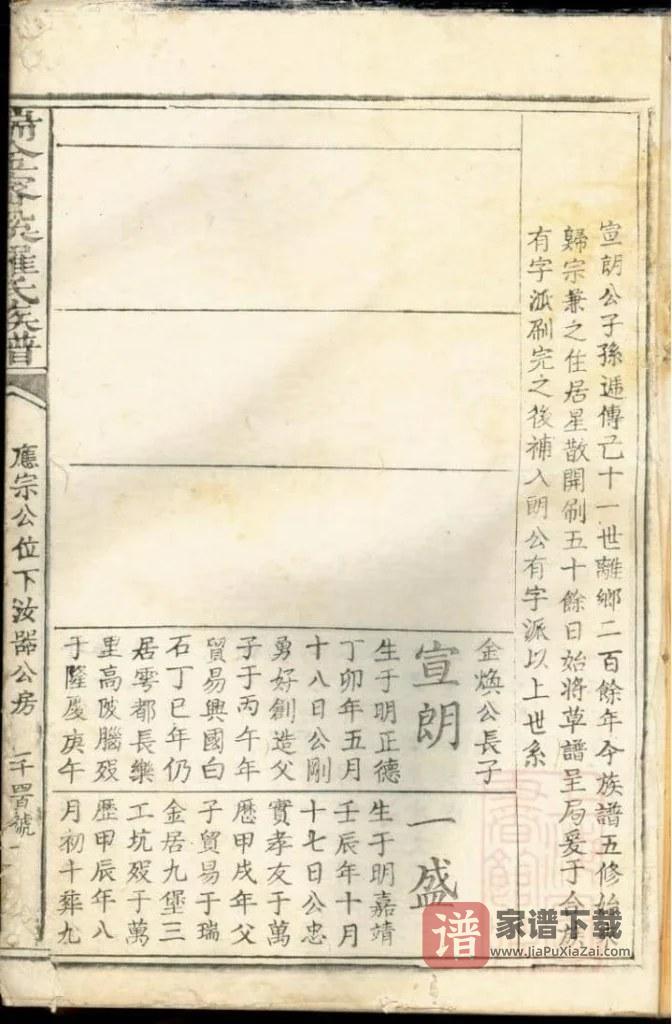 宣朗公子孫逓傳已十一世離鄉二百餘年今族譜五修始
歸宗兼之住居星散開刷五十餘日始將草譜呈局爰于合族
有字派刷完之後補入朗公有字派以上世系
金煥公長子
宣朗
生于明正德
丁卯年五月
十八日公剛
勇好創造父
子于丙午年
貿易興國白
石丁巳年仍
居雩都長樂
里高陂腦殁
于隆慶庚午
一盛
生于明嘉靖
壬辰年十月
十七日公忠
實孝友于萬
曆甲戌年父
子貿易于瑞
金居九堡三
工坑殁于萬
曆甲辰年八
月初十葬九
羅氏族譜
應宗公位下汝器公房
譜
家谱下载
www.JiaPuXiaZai.com